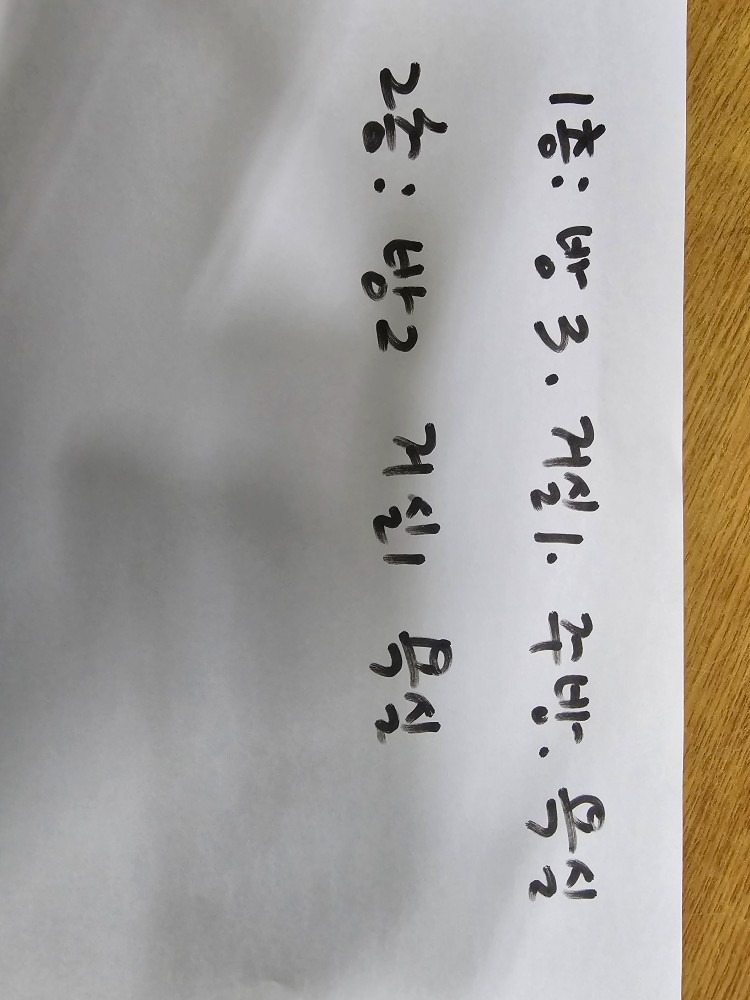 1층: 방 3. 거실1. 주방. 욕실
2층: 방2 거실1 욕실